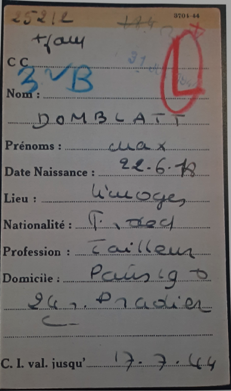 25212
C C
3 ✓ B
L
Nom :
DOMBLATT
Prénoms : Max
Date Naissance : 22.6.18
Lieu : Limoges
Nationalité :
Profession : Tailleur
Domicile : Paris 19
24 r. Pradier
C. I. val. jusqu' 17.7.44